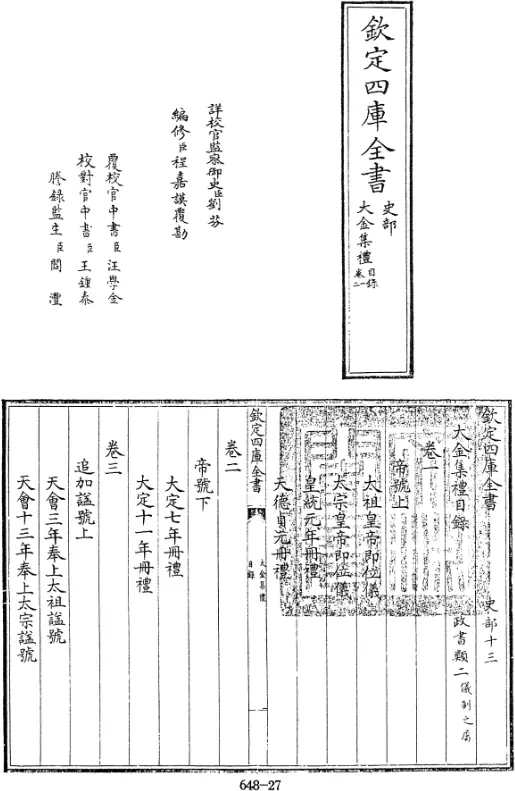 欽定四庫全書
史部
大金集禮
目錄
卷一
二
詳校官監察御史臣劉芬
編修臣程嘉謨覆勘
覆校官中書臣汪學金
校對官中書臣王鍾泰
謄錄監生臣閻灃
欽定四庫全書 史部十三
大金集禮目錄 政書類二儀制之屬
卷一
帝號上
太祖皇帝即位儀
太宗皇帝即位儀
皇統元年冊禮
天德貞元冊禮
欽定四庫全書
大金集禮
目錄
一
卷二
帝號下
大定七年冊禮
大定十一年冊禮
卷三
追加諡號上
天會三年奉上太祖諡號
天會十三年奉上太宗諡號
648-27